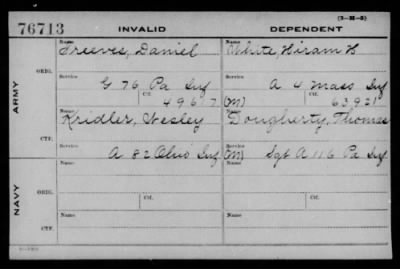 (3-M-3)
76713 INVALID DEPENDENT
Name Name
Treeves, Daniel White, Hiram H
ORIG.
Service Service
G 76 Pa Inf A 4 Mass Inf
Ctf. Ctf.
4967 (M) 63921
ARMY
Name Name
Kridler, Wesley Dougherty, Thomas
CTF.
Service Service
A 82 Ohio Inf (M) Sgt A 116 Pa Inf
Ctf. Ctf.
NAVY
Name Name
ORIG.
Service Service
Ctf. Ctf.
Name Name
CTF.
Service Service
Ctf. Ctf.